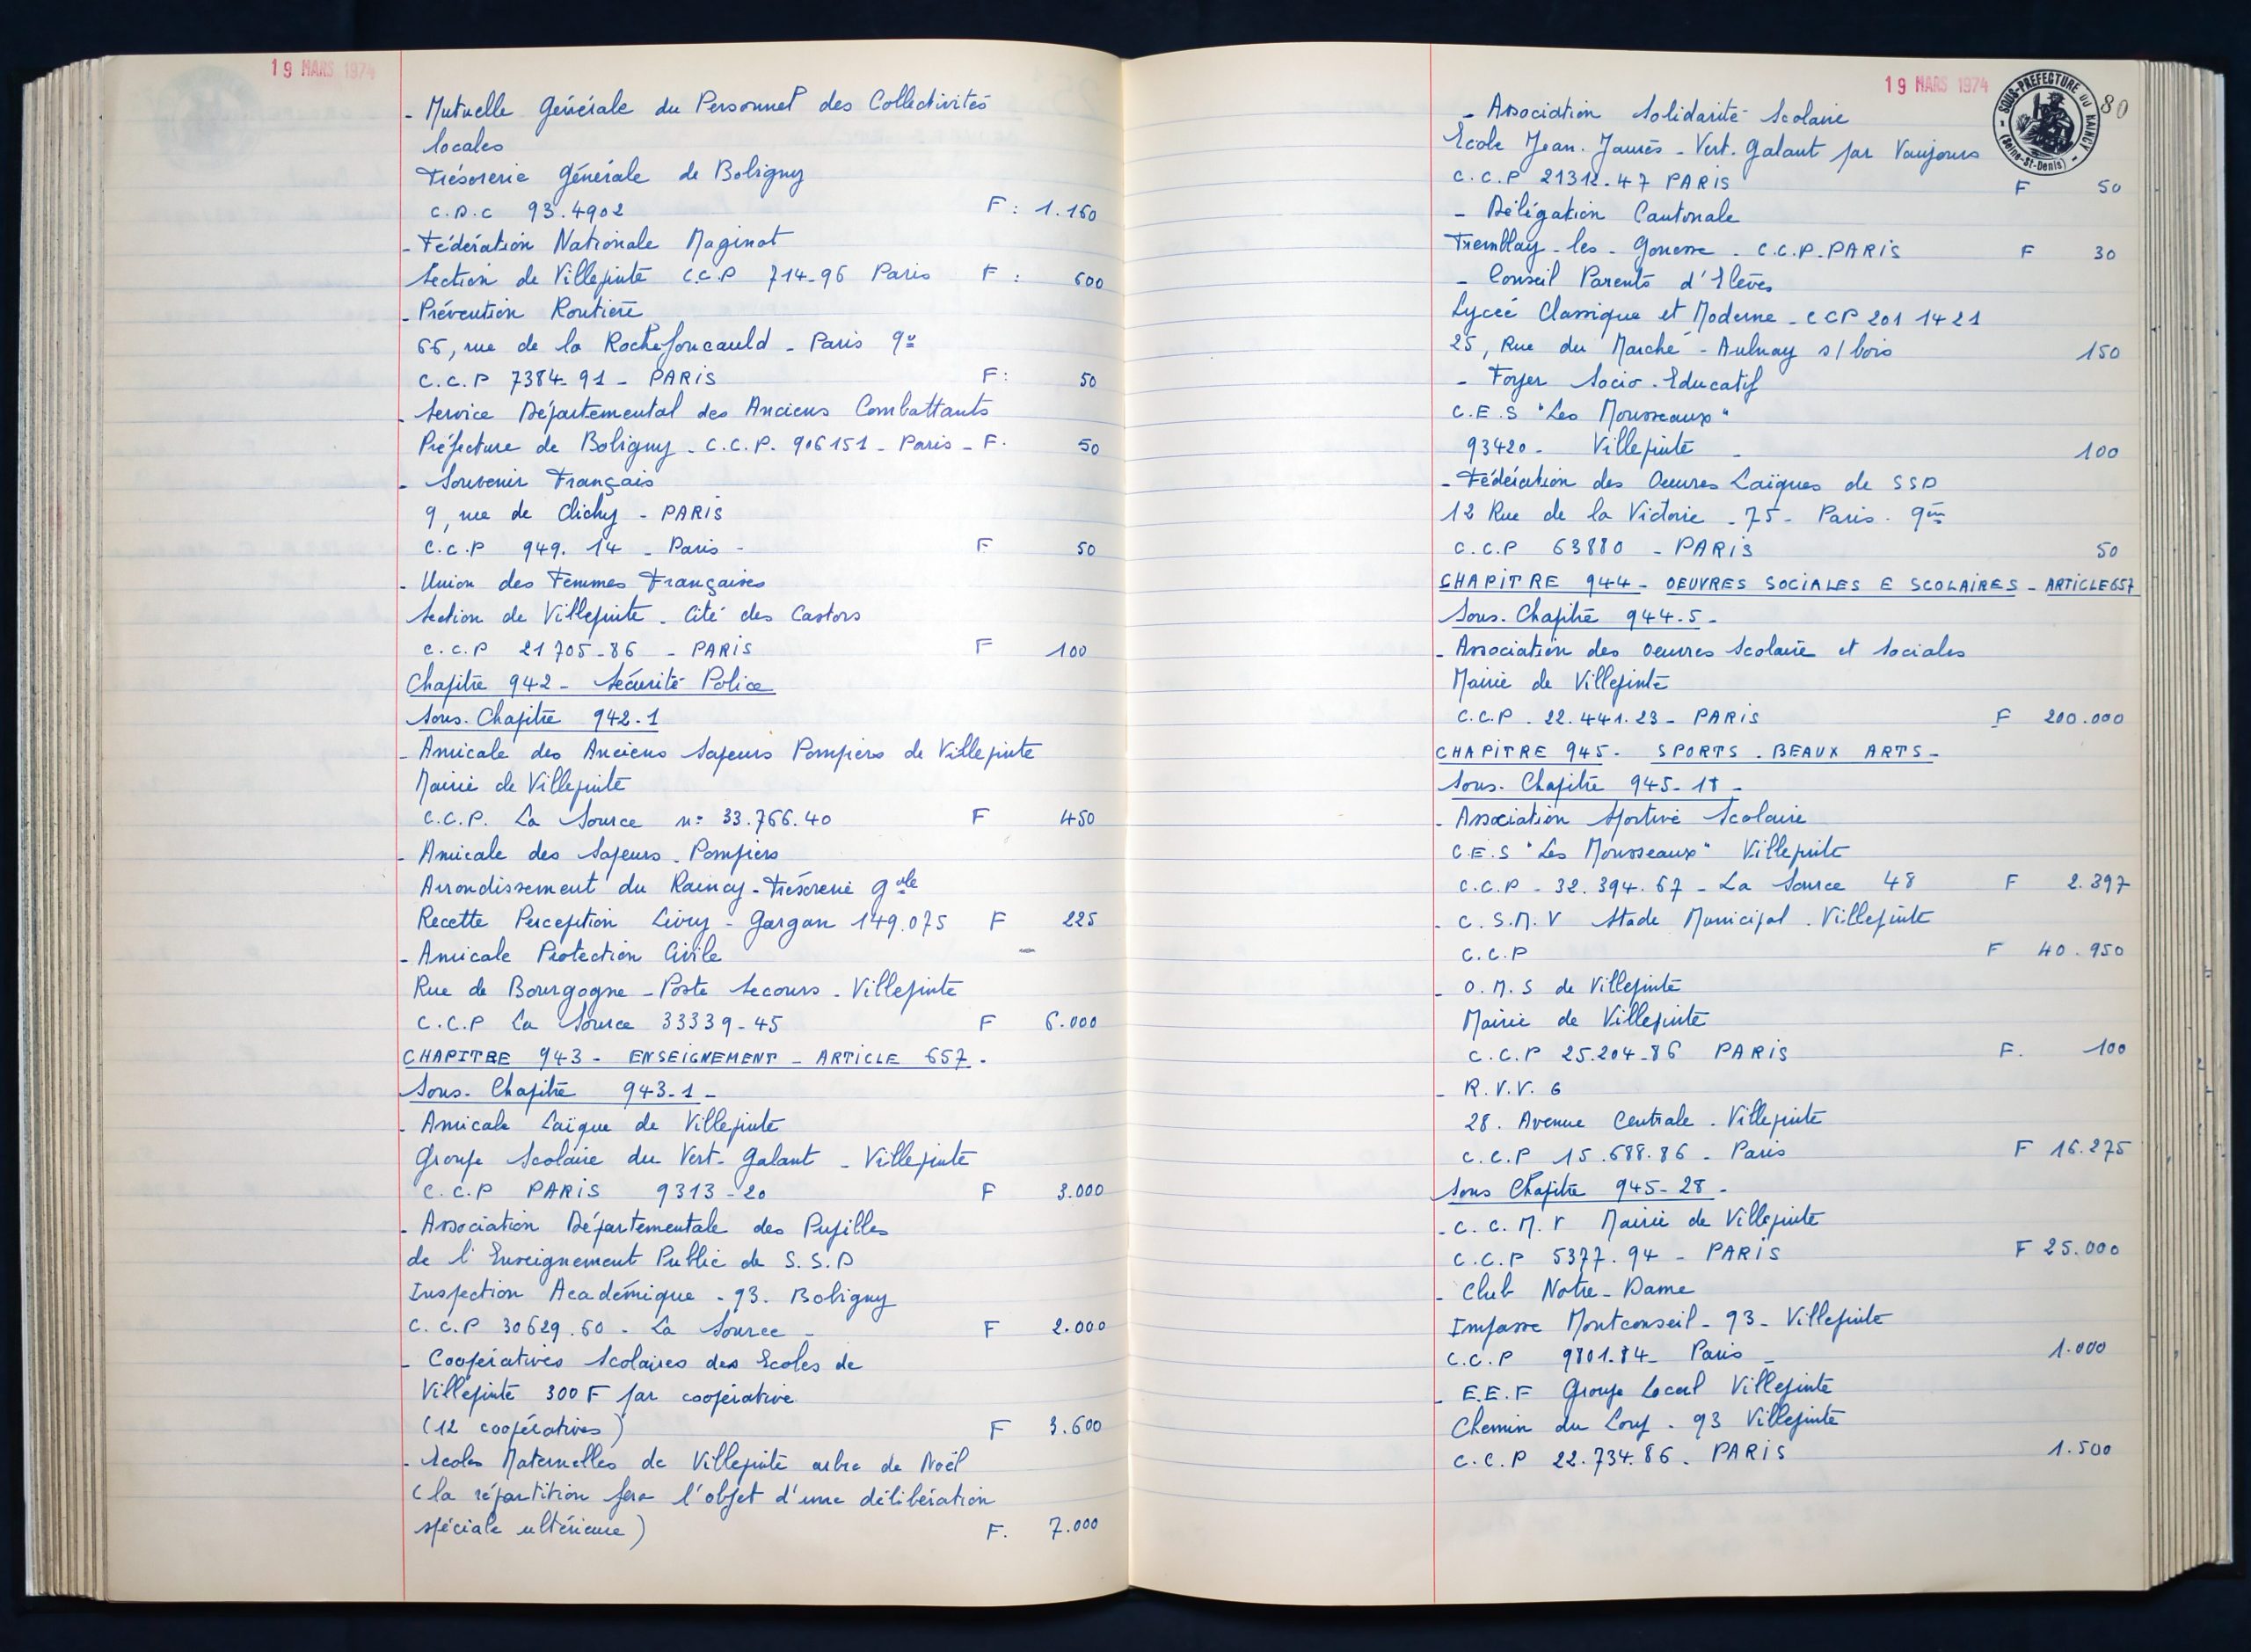 19 MARS 1974
- Mutuelle Générale du Personnel des Collectivités
locales
Trésorerie Générale de Bobigny
C.D.C 93.4902 F: 1.160
- Fédération Nationale Maginot
Section de Villepinte C.C.P 714-96 Paris F: 600
- Prévention Routière
66, rue de la Rochefoucauld - Paris 9e
C.C.P 7384-91 - PARIS F: 50
- Service Départemental des Anciens Combattants
Préfecture de Bobigny - C.C.P. 906151 - Paris - F. 50
- Souvenir Français
9, rue de Clichy - PARIS
C.C.P 949.14 - Paris - F 50
- Union des Femmes Françaises
Section de Villepinte - Cité des Castors
C.C.P 21705-86 - PARIS F 100
Chapitre 942 - Sécurité Police
Sous-Chapitre 942.1
- Amicale des Anciens Sapeurs Pompiers de Villepinte
Mairie de Villepinte
C.C.P. La Source n° 33.766.40 F 450
- Amicale des Sapeurs-Pompiers
Arrondissement du Raincy - Trésorerie gale
Recette Perception Livry-Gargan 149.075 F 225
- Amicale Protection Civile
Rue de Bourgogne - Poste Secours - Villepinte
C.C.P La Source 33339-45 F 6.000
CHAPITRE 943 - ENSEIGNEMENT - ARTICLE 657.
Sous-Chapitre 943-1 -
- Amicale Laïque de Villepinte
Groupe Scolaire du Vert-Galant - Villepinte
C.C.P PARIS 9313-20 F 3.000
- Association Départementale des Pupilles
de l'Enseignement Public de S.S.D
Inspection Académique - 93. Bobigny
C.C.P 30629.60 - La Source - F 2.000
- Coopératives Scolaires des Ecoles de
Villepinte 300 F par coopérative
(12 coopératives) F 3.600
- Ecoles Maternelles de Villepinte arbre de Noël
(la répartition fera l'objet d'une délibération
spéciale ultérieure) F. 7.000
19 MARS 1974
SOUS-PREFECTURE DU RAINCY
(Seine-St-Denis)
80
- Association Solidarité Scolaire
Ecole Jean-Jaurès - Vert-Galant par Vaujours
C.C.P 21312.47 PARIS F 50
- Délégation Cantonale
Tremblay-les-Gonesse - C.C.P. PARIS F 30
- Conseil Parents d'Elèves
Lycée Classique et Moderne - CCP 201 1421
25, Rue du Marché - Aulnay s/bois 150
- Foyer Socio-Educatif
C.E.S "Les Mousseaux"
93420 - Villepinte - 100
- Fédération des Oeuvres Laïques de SSD
12 Rue de la Victoire - 75 - Paris. 9èm
C.C.P 63880 - PARIS 50
CHAPITRE 944 - OEUVRES SOCIALES E SCOLAIRES - ARTICLE 657
Sous-Chapitre 944.5 -
- Association des Oeuvres Scolaire et Sociales
Mairie de Villepinte
C.C.P. 22.441.23 - PARIS F 200.000
CHAPITRE 945. SPORTS. BEAUX ARTS -
Sous-Chapitre 945-18 -
- Association Sportive Scolaire
C.E.S "Les Mousseaux" Villepinte
C.C.P - 32.394.67 - La Source 48 F 2.397
- C.S.M.V Stade Municipal. Villepinte
C.C.P F 40.950
- O.M.S de Villepinte
Mairie de Villepinte
C.C.P 25.204-86 PARIS F. 100
- R.V.V. 6
28. Avenue Centrale. Villepinte
C.C.P 15.688.86 - Paris F 16.275
Sous Chapitre 945-28 -
- C.C.M.V Mairie de Villepinte
C.C.P 5377.94 - PARIS F 25.000
- Club Notre-Dame
Impasse Montconseil - 93 - Villepinte
C.C.P 9801.84 - Paris - 1.000
- E.E.F Groupe Local Villepinte
Chemin du Loup. 93 Villepinte
C.C.P 22.734.86. PARIS 1.500